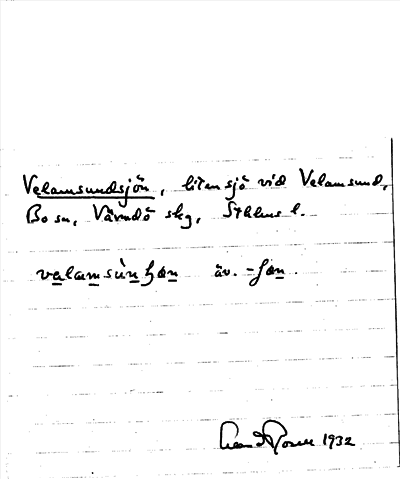 Velamsundsjön, liten sjö vid Velamsund,
Bo sn, Värmdö skg, Sthlms l.
valamsùnʃɷn äv. -ʃɷn.
1932